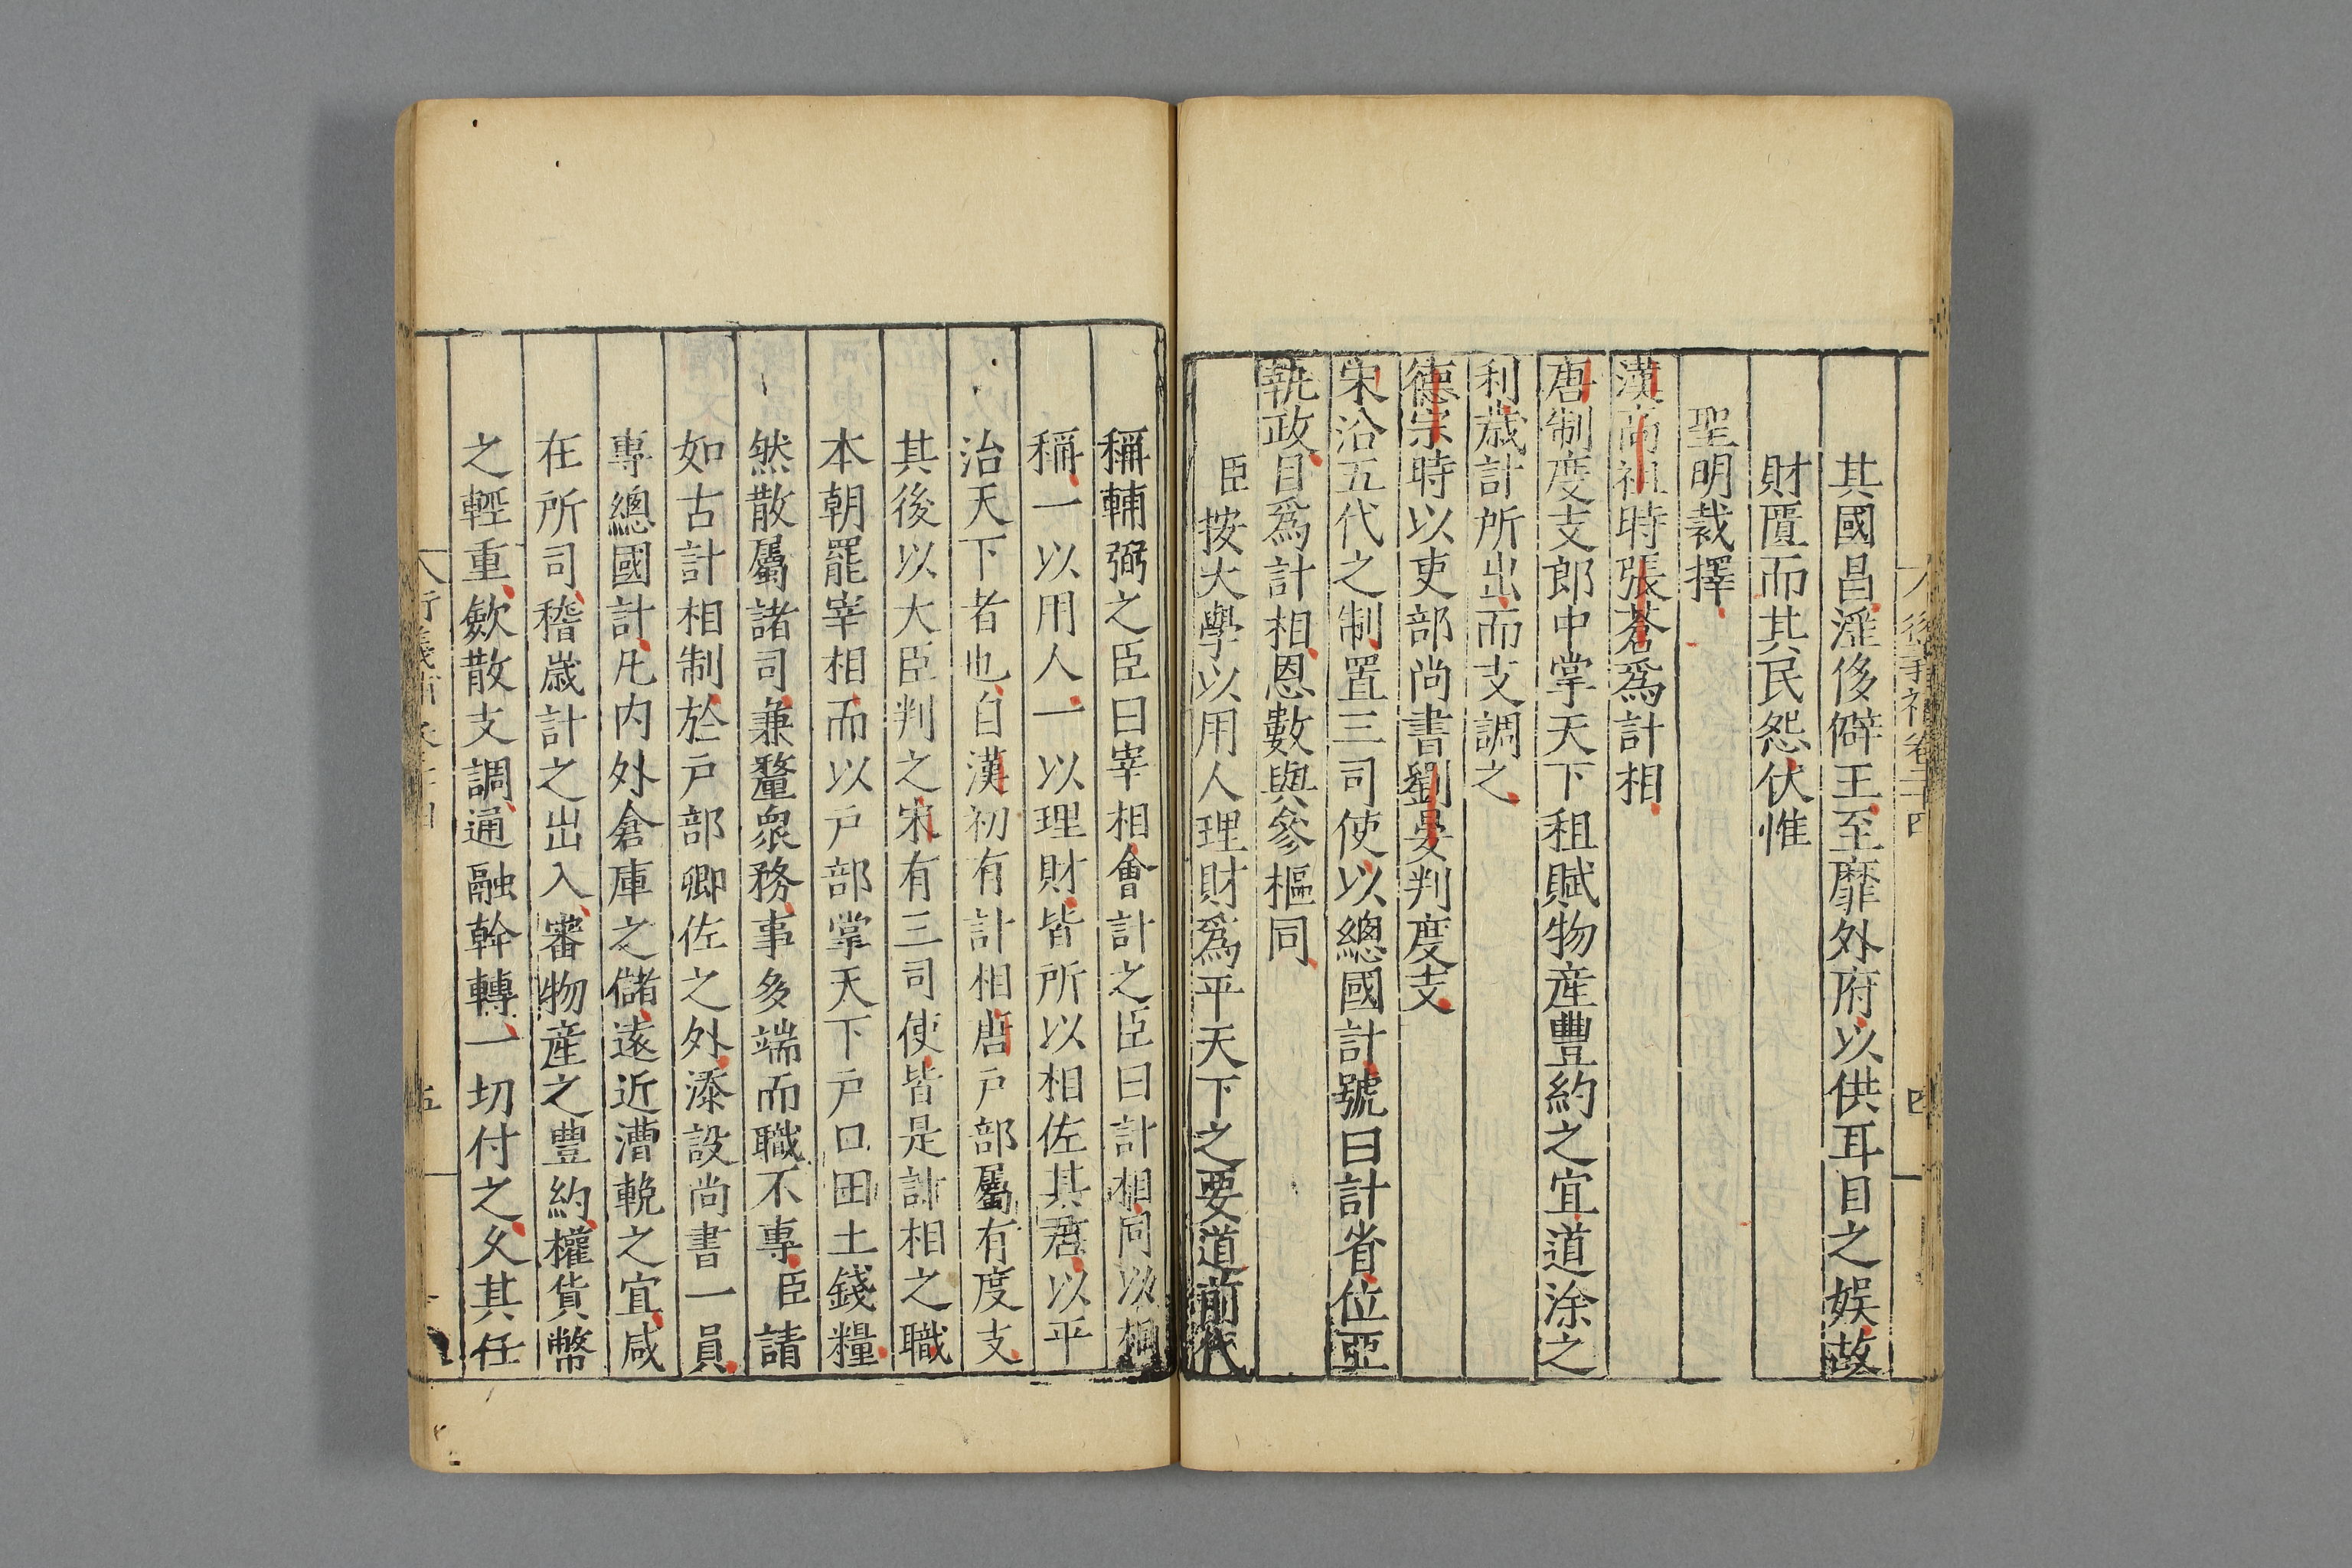 其國昌滛侈僻王至靡外府以供耳目之娛故
財匱而其民怨伏惟
聖明裁擇
漢高祖時張蒼爲計相
唐制度支郎中掌天下租賦物産豐約之宜道涂之
利歲計所出而支調之
德宗時以吏部尚書劉晏判度支
宋沿五代之制置三司使以總國計號曰計省位亞
執政目爲計相恩數與參樞同
臣按大學以用人理財爲平天下之要道前代
稱輔弼之臣曰宰相會計之臣曰計相同以相
稱一以用人一以理財皆所以相佐其君以平
治天下者也自漢初有計相唐戶部屬有度支
其後以大臣判之宋有三司使皆是計相之職
本朝罷宰相而以戶部掌天下戶口田土錢糧
然散屬諸司兼釐衆務事多端而職不專臣請
如古計相制於戶部卿佐之外添設尚書一員
專總國計凡内外倉庫之儲遠近漕輓之宜咸
在所司稽歲計之出入審物産之豐約權貨幣
之輕重斂散支調通融幹轉一切付之久其任